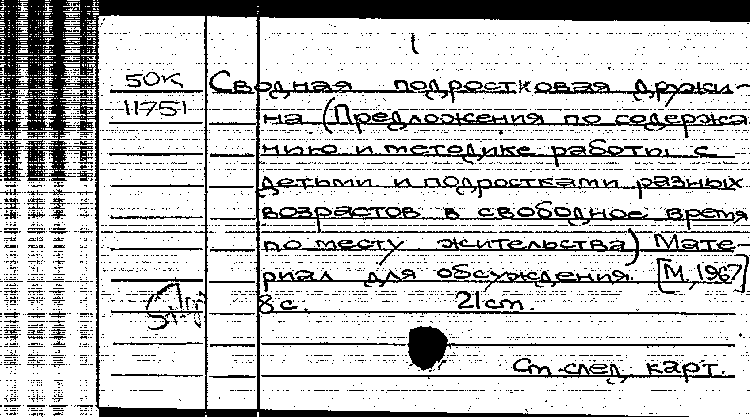 50К Сводная подростковая дружи-
11751 на (Предложения по содержа
нию и методике работы с
детьми и подростками разных
возрастов в свободное время
по месту жительства) Мате-
риал для обсуждения. [М, 1967]
8 с. 21 см.
См. след. карт.